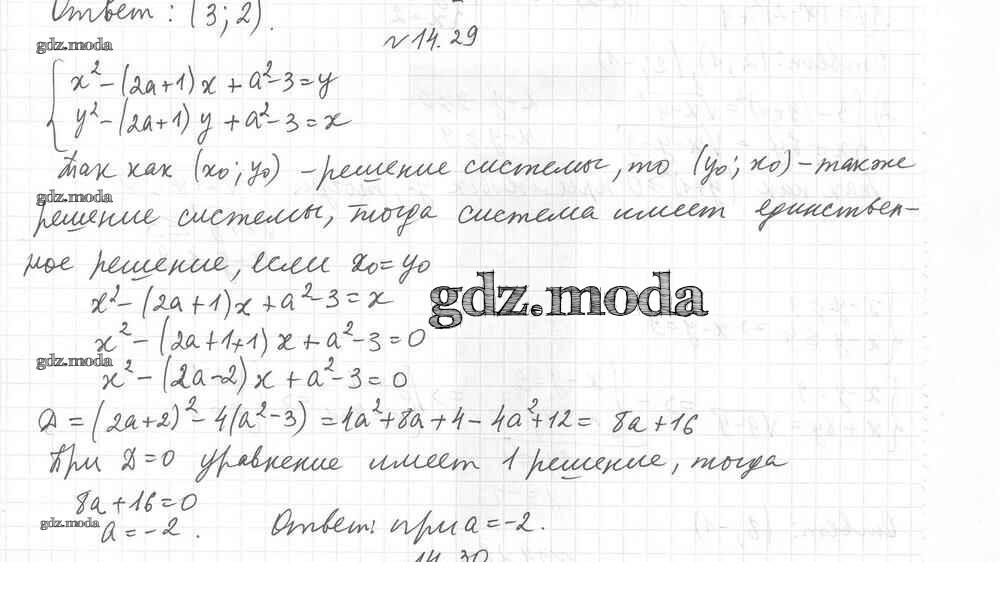 Ответ: (3; 2).
№14.29
gdz.moda
x² – (2a+1)x + a² – 3 = y
y² – (2a+1)y + a² – 3 = x
Так как (x₀; y₀) – решение системы, то (y₀; x₀) – также
gdz.moda
решение системы, тогда система имеет единствен-
ное решение, если x₀ = y₀
gdz.moda
x² – (2a+1)x + a² – 3 = x
x² – (2a+1+1)x + a² – 3 = 0
gdz.moda
x² – (2a–2)x + a² – 3 = 0
D = (2a+2)² – 4(a² – 3) = 4a² + 8a + 4 – 4a² + 12 = 8a + 16
При D = 0 уравнение имеет 1 решение, тогда
8a + 16 = 0
gdz.moda
a = –2. Ответ: при a = –2.
14.30